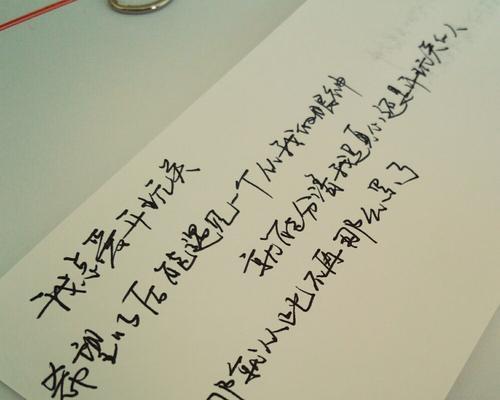 我总爱开玩笑
希望以后能遇见一个从我的眼神
就能分清我是真心还是开玩笑的人
那就从此不再那么累了